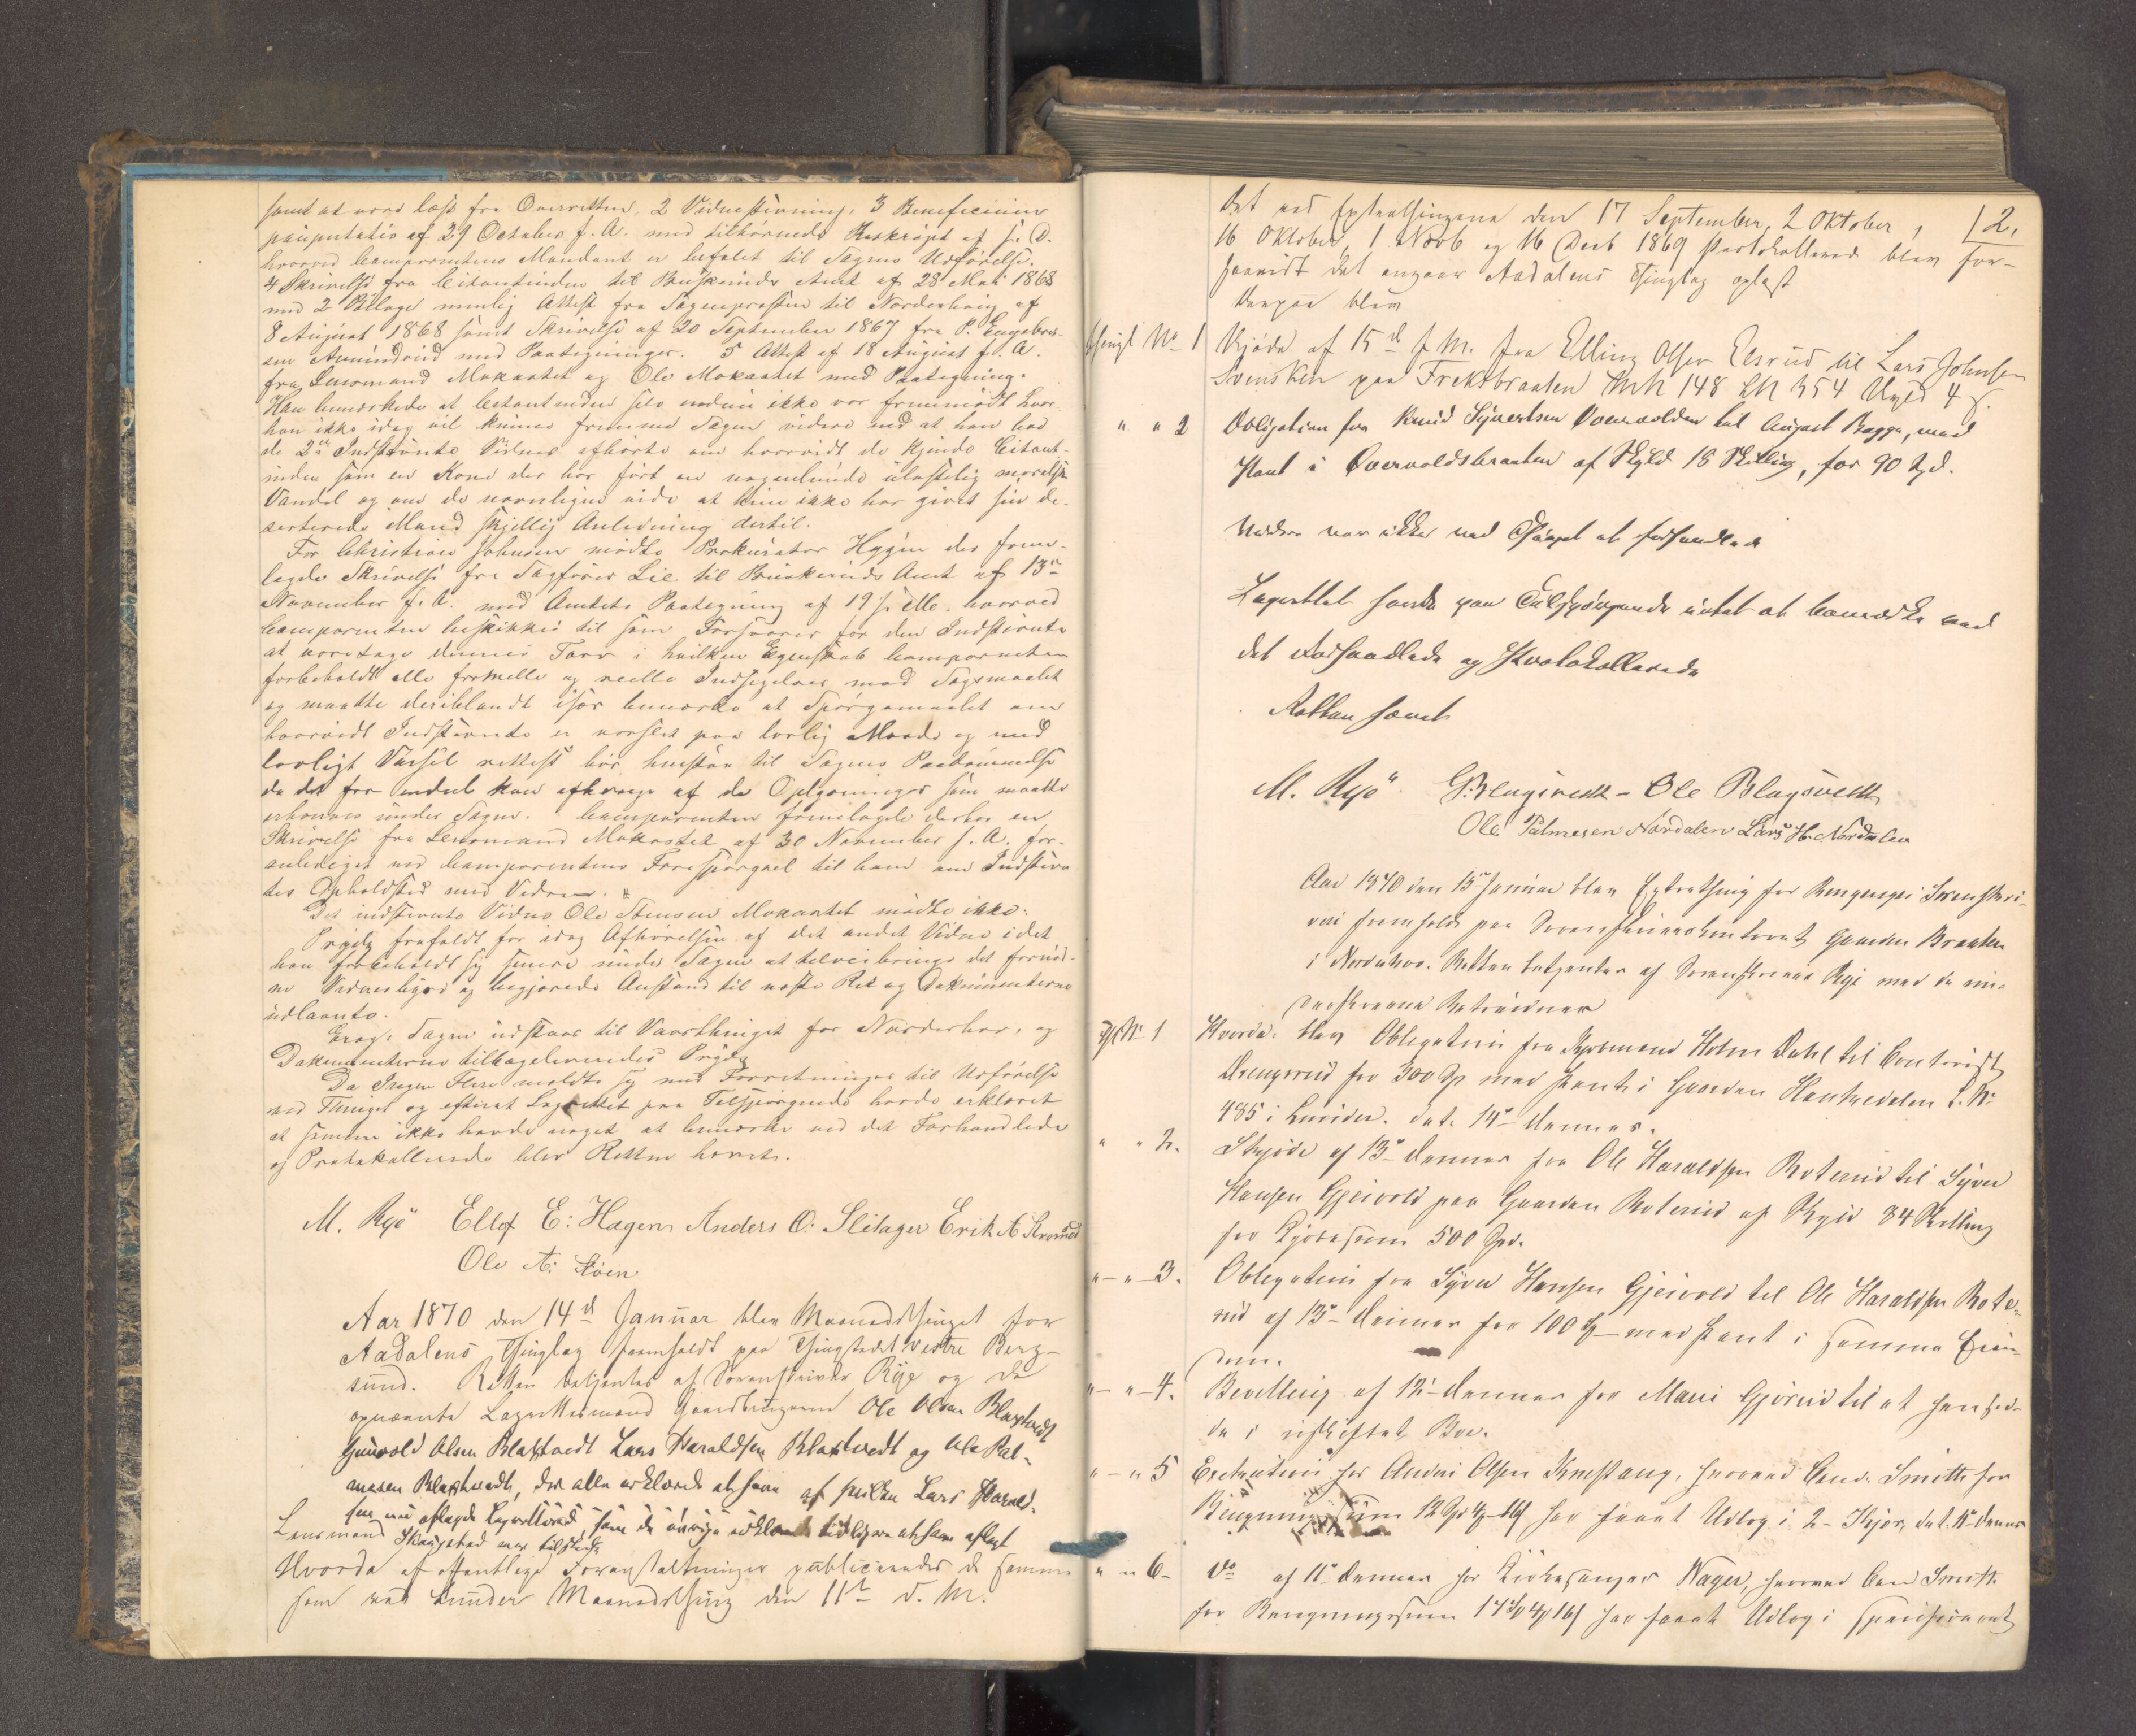 samt at være læst fra Overretten, 2 Vidnestævning, 3 Beneficium
paupertatis af 29 October f. A. med tilhørende Reskript af s. D.
hvorved Comparentens Mandant er befalet til Sagens Udførelse.
4 Skrivelse fra Citantinden til Buskeruds Amt af 28 Mai 1868
med 2 Bilage nemlig Attest fra Sognepresten til Norderhoug af
8 August 1868 samt Skrivelse af 20 September 1867 fra P. Engebret-
sen med Paategninger. 5 Attest af 18 August f. A.
fra Lensmand Mokastet og Ole Mokastet med Paategning.
Han bemærkede at Citantinden selv endnu ikke var fremmødt hvor
han ikke idag vil kunne fremme Sagen videre end at han bad
de 2de Indstævnte Vidner afhørte om hvorvidt de kjende Citant-
inden som en Kone der har ført en ulastelig moralsk
Vandel og om de navnligen vide at hun ikke har givet sin de-
serterede Mand skjellig Anledning dertil.
For Christian Johnsen mødte Prokurator Hygen der frem-
lagde Skrivelse fra Sagfører Lie til Buskeruds Amt af 13de
November f. A. med Amtets Paategning af 19 s. M. hvorved
Comparenten beskikkes til som Forsvarer for den Indstævnte
at varetage dennes Tarv i hvilken Egenskab Comparenten
forbeholdt alle formelle og reelle Indsigelser mod Søgsmaalet
og maatte deriblandt især bemærke at Spørgsmaalet om
hvorvidt Indstævnte er varslet paa lovlig Maade og med
lovligt Varsel rettest bør henstaa til Sagens Paadømmelse
da det for endel kan afhænge af de Oplysninger som maatte
erhverves under Sagen. Comparenten fremlagde derhos en
Skrivelse fra Lensmand Mokastet af 30 November f. A. for-
anlediget ved Comparentens Forespørgsel til ham om Indstævn
tes Opholdsted med Videre.
Det indstævnte Vidne Ole Stensen Mokastet mødte ikke.
frafaldt for idag Afhørelsen af det andet Vidne idet
han forbeholdt sig senere under Sagen at tilveiebringe det fornød-
ne Vidnesbyrd og begjærede Anstand til næste Ret og Dokumenterne
udlaante.
Erag. Sagen udstaar til Vaarthinget for Norderhov, og
Dokumenterne tilbageleveredes
Da Ingen Flere meldte sig med Forretninger til Udførelse
ved Thinget og efterat Lagrettet paa Tilspørgende havde erklæret
at samme ikke havde noget at bemærke ved det Forhandlede
og Protokollerede blev Retten hævet.
M. Rye Ellef E: Hagen Anders O: Slitager Erik A
Ole A:
Aar 1870 den 14d Januar blev Maanedsthinget for
Aadalens Thinglag fremholdt paa Thingstedet vestre Berg-
sund. Retten betjentes af Sorenskriver Rye og de
opnævnte Lagrettesmænd Gaardbrugerne Ole Olsen Blaxtvedt
Gunvold Olsen Blaxtvedt Lars Haraldsen Blaxtvedt og Ole Pal-
mesen Blaxtvedt, der alle erklærede at have af hvilke Lars Harald-
sen nu aflagde Lagretteed som de øvrige erklærede tidligere at have aflagt
Lensmand Skougstad var tilstede
Hvorda af offentlige Foranstaltninger publiceredes de samme
som ved Lunder Maanedsthing den 11te d. M.
2,
Det ved Extrathingene den 17 September, 2 Oktober,
16 Oktober, 1 Novb og 16 Decb 1869 Protokollerede blev for-
saavidt det angaar Aadalens Thinglag oplæst
Derpaa blev
Thingl No 1 Skjøde af 15d f. M. fra Elling Olsen Elsrud til Lars Johnsen
Svensken paa Frektbraaten M N 148 L N 354 Skyld 4 ß.
" " 2 Obligation fra Knud Syvertsen Overvolden til August Bagge, med
Pant i Overvoldsbraaten af Skyld 18 Skilling, for 90 Spd.
Videre var ikke ved Thinget at forhandle
Lagrettet havde paa Tilspørgende intet at bemærke ved
det Forhandlede og Protokollerede
Retten hævet
M. Rye G. Blagsvedt - Ole Blagsvedt
Ole Palmesen Nordalen Lars H. Nordalen
Aar 1870 den 15de Januar blev Extrathing for Ringeriges Sorenskri-
veri fremholdt paa Sorenskriverkontoret Gaarden Braaten
i Norderhov. Retten betjentes af Sorenskriver Rye med de un-
derskrevne Retsvidner
No 1 Hvorda: blev Obligation fra Kjøbmand Holm Dahl til Contorist
Drengsrud for 300 Sp med Pant i Gaarden Hankedalen L. No
485 i Lunder. dat. 14de dennes.
" " 2. Skjøde af 13de dennes fra Ole Haraldsen Roterud til Syver
Hansen Gjeivold paa Gaarden Roterud af Skyld 84 Skilling
for Kjøbesum 500 Spd.
" - " - 3. Obligation fra Syver Hansen Gjeivold til Ole Haraldsen Rote-
rud af 13de dennes for 100 Sp med Pant i samme Eien
dom.
" - " - 4. Bevilling af 12te dennes for Mari Gjørud til at hensid-
de i uskiftet Boe.
" - " 5 Execution hos Anders Olsen Knestang, hvorved Cand. Smith for
Beregningssum 12 Sp 4 ß 16 s har faaet Udlæg i 2 Kjør, dat. 11te dennes
" " 6 - Do af 11te dennes hos Kirkesanger Wager, hvorved Cand Smith
for Beregningssum 17 Sp 4 ß 16 s har faaet Udlæg i